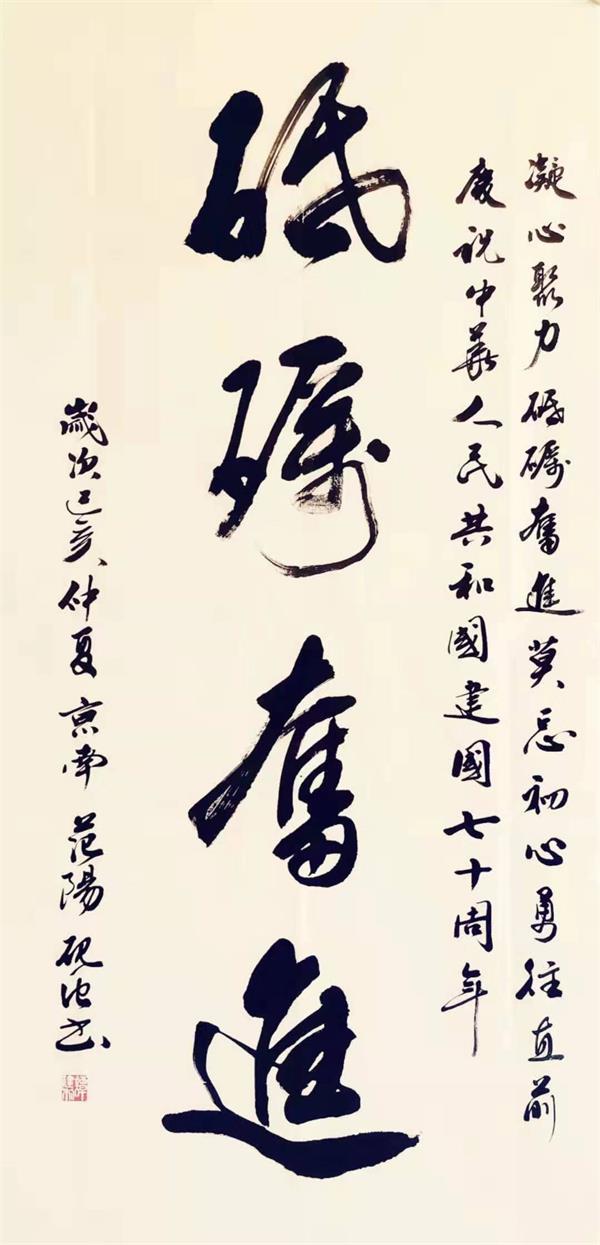 凝心聚力砥砺奮進莫忘初心勇往直前
慶祝中華人民共和國建國七十周年
砥砺奮進
歲次己亥仲夏京南范陽砚池書